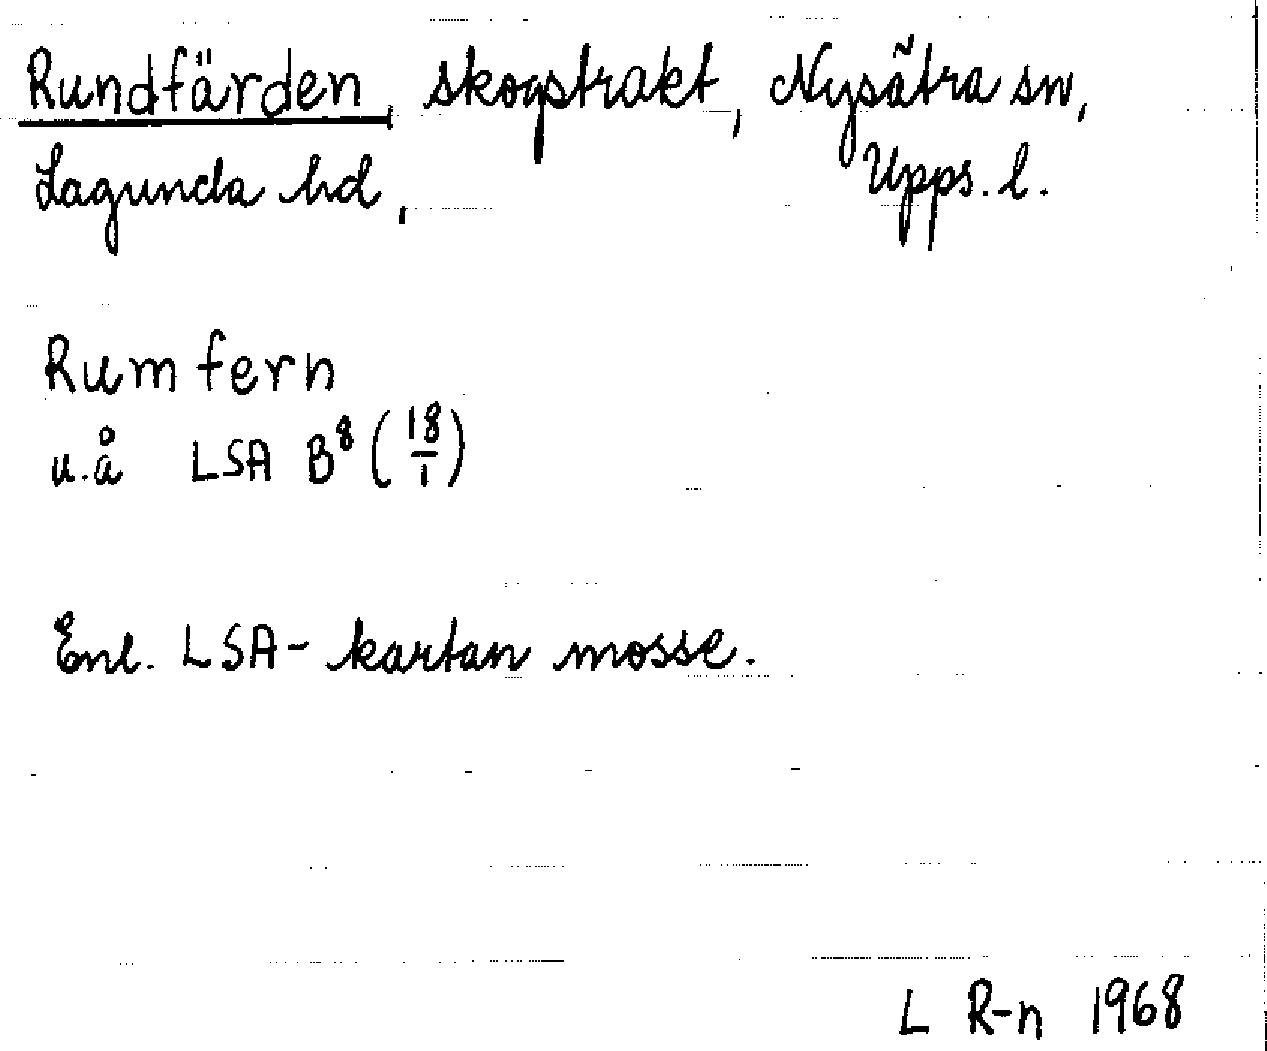 Rundfärden, skogstrakt, Nysätra sn,
Lagunda hd, Upps. l.
Rumfern
u.å LSA B⁸ (18/1)
Enl. LSA-kartan mosse.
L R-n 1968